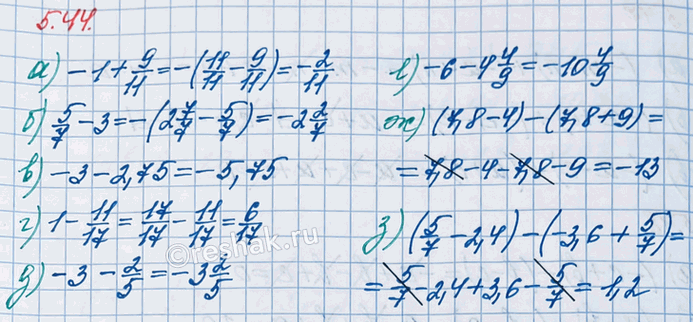 5.44.
а) -1 + 9/11 = -(11/11 - 9/11) = -2/11
б) 5/7 - 3 = -(2 7/7 - 5/7) = -2 2/7
в) -3 - 2,75 = -5,75
г) 1 - 11/17 = 17/17 - 11/17 = 6/17
д) -3 - 2/5 = -3 2/5
е) -6 - 4 4/9 = -10 4/9
ж) (7,8 - 4) - (7,8 + 9) =
= 7,8 - 4 - 7,8 - 9 = -13
з) (5/7 - 2,4) - (-3,6 + 5/7) =
= 5/7 - 2,4 + 3,6 - 5/7 = 1,2
©reshak.ru